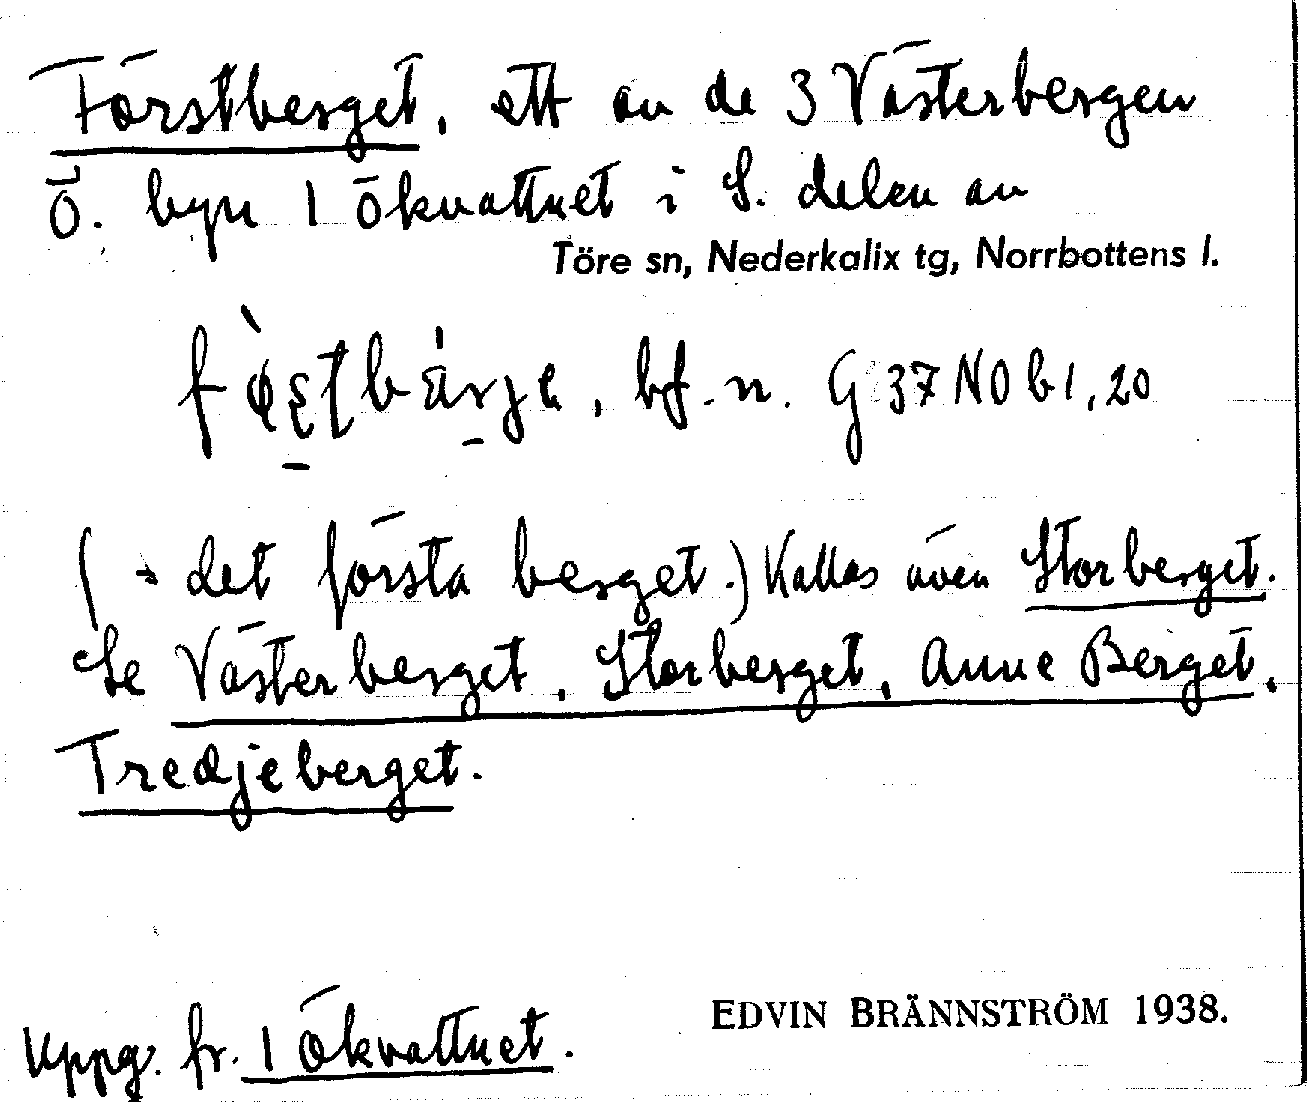 Förstberget, ett av de 3 Västerbergen
Ö. byn 1 Ökvattnet i S. delen av
Töre sn, Nederkalix tg, Norrbottens l.
bf. n. G 37 N O b 1, 20
(= det första berget.) Kallas även Storberget.
Se Västerberget, Storberget, Anne Berget,
Tredjeberget.
Uppg. fr. 1 Ökvattnet.
EDVIN BRÄNNSTRÖM 1938.